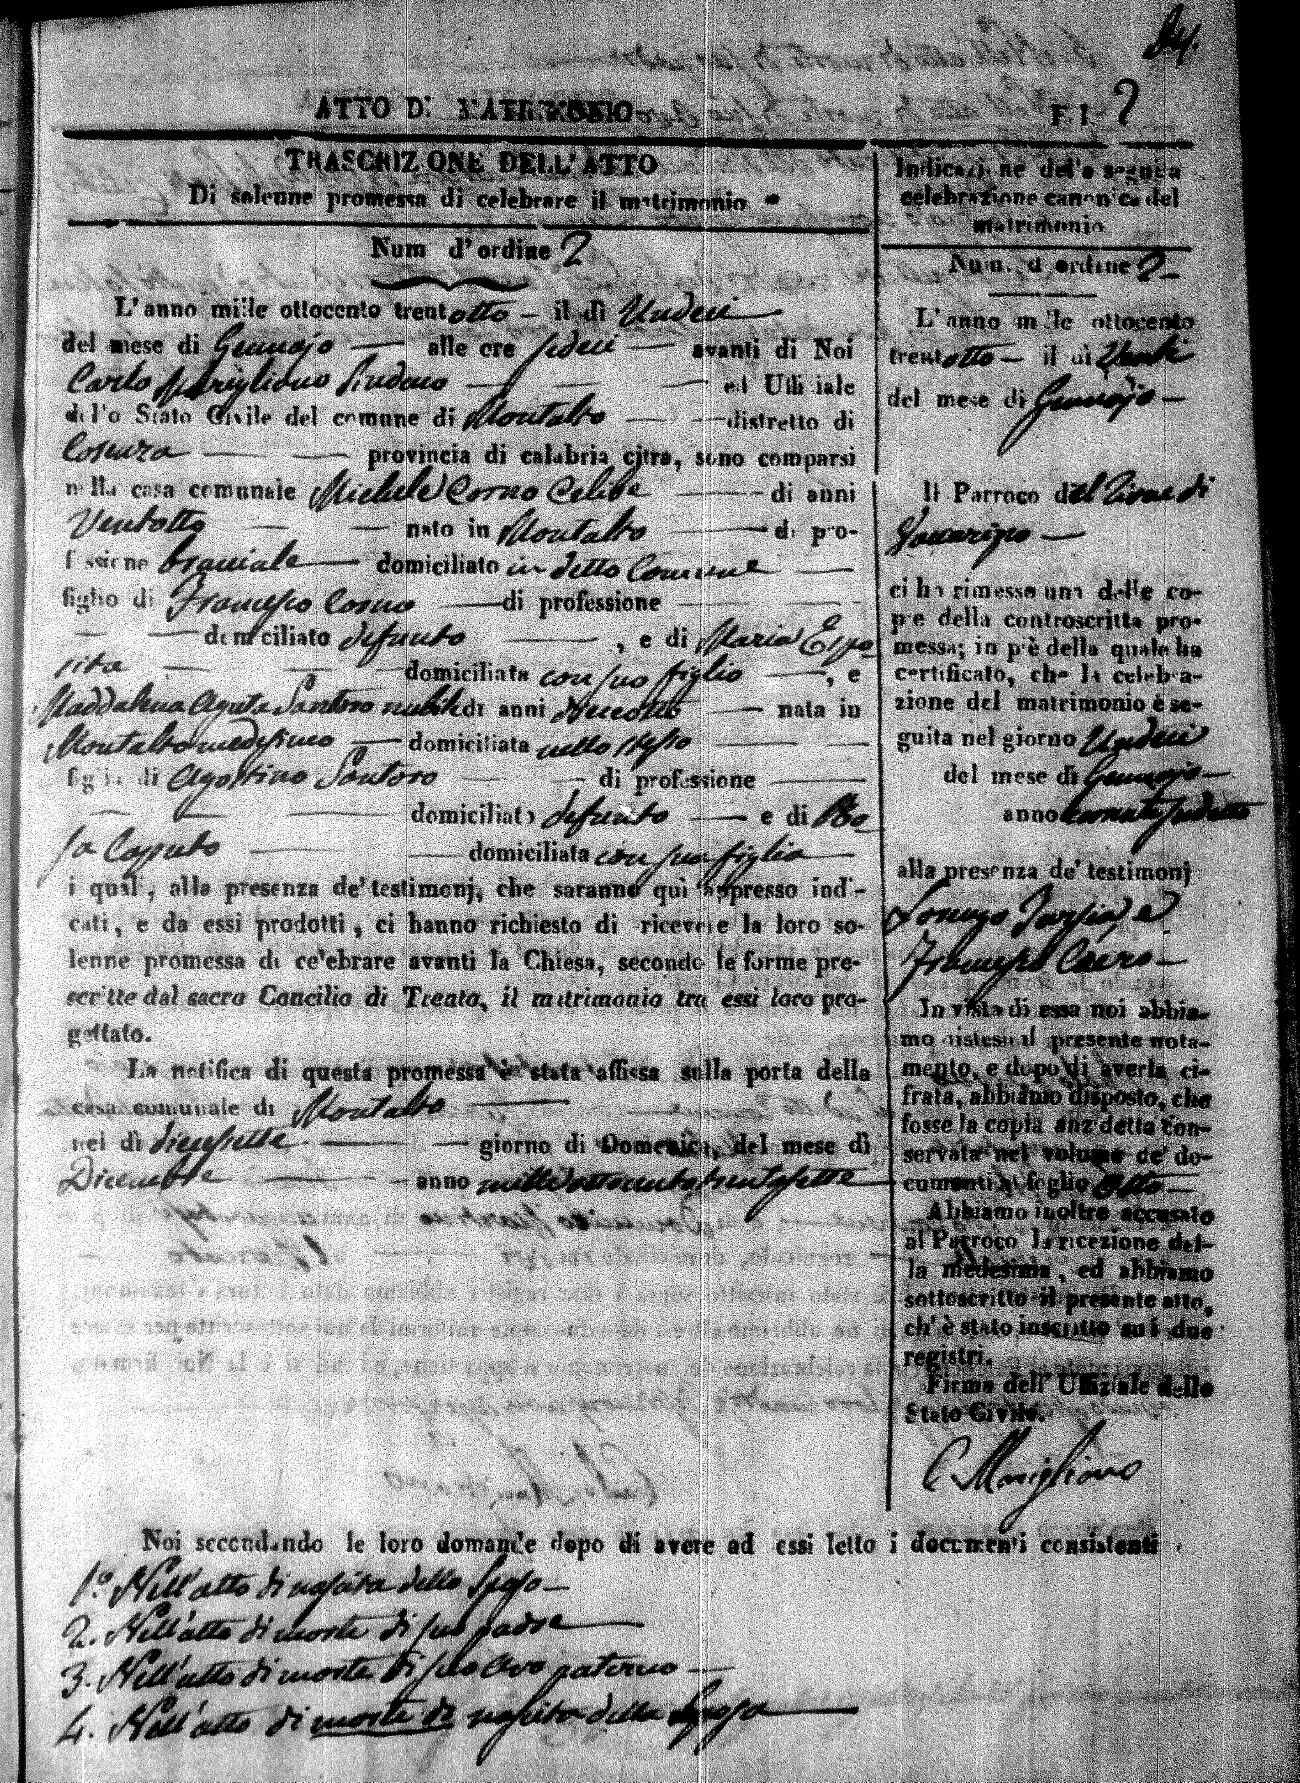 84.
ATTO DI MATRIMONIO
F. I. 2
TRASCRIZIONE DELL'ATTO
Di solenne promessa di celebrare il matrimonio
Num d'ordine 2
L'anno mille ottocento trentotto — il dì Undeci
del mese di Gennajo — alle ore sedeci — avanti di Noi
Carlo Marigliano Sindaco — ed Uffiziale
dello Stato Civile del comune di Montalto — distretto di
Cosenza — provincia di calabria citra, sono comparsi
nella casa comunale Michele Corno Celibe — di anni
Ventotto — nato in Montalto — di pro-
fessione bracciale — domiciliato in detto Comune —
figlio di Francesco Corno — di professione —
— domiciliato defunto — , e di Maria Espo
sita — domiciliata con suo figlio —, e
Maddalena Agata Santoro nubile di anni dieceotto — nata in
Montalto medesimo — domiciliata nello stesso —
figlia di Agostino Santoro — di professione —
— domiciliato defunto — e di Ro
sa Caputo — domiciliata con sua figlia —
i quali, alla presenza de' testimonj, che saranno qui appresso indi-
cati, e da essi prodotti, ci hanno richiesto di ricevere la loro so-
lenne promessa di celebrare avanti la Chiesa, secondo le forme pre-
scritte dal sacro Concilio di Trento, il matrimonio tra essi loro pro-
gettato.
La notifica di questa promessa è stata affissa sulla porta della
casa comunale di Montalto —
nel dì diecesette — giorno di Domenica, del mese dì
Dicembre — anno milleottocentotrentasette —
Indicazione della seguita
celebrazione canonica del
matrimonio
Num. d'ordine 2 —
L'anno mille ottocento
trentotto — il dì Undeci
del mese di Gennajo —
Il Parroco di
Vaccarizzo —
ci ha rimesso una delle co-
pie della controscritta pro-
messa; in piè della quale ha
certificato, che la celebra-
zione del matrimonio è se-
guita nel giorno Undeci
del mese di Gennajo —
anno
alla presenza de' testimonj
Lorenzo Tarsia, e
Francesco —
In vista di essa noi abbia-
mo disteso il presente nota-
mento, e dopo di averla ci-
frata, abbiamo disposto, che
fosse la copia anzidetta con-
servata nel volume de' do-
cumenti al foglio Otto —
Abbiamo inoltre accusato
al Parroco la ricezione del-
la medesima, ed abbiamo
sottoscritto il presente atto,
ch' è stato inscritto sui due
registri.
Firma dell' Uffiziale dello
Stato Civile.
C Marigliano
Noi secondando le loro domande dopo di avere ad essi letto i documenti consistenti
1.º Nell'atto di nascita dello Sposo —
2. Nell'atto di morte di suo padre —
3. Nell'atto di morte di suo avo paterno —
4. Nell'atto di morte di nascita della Sposa —